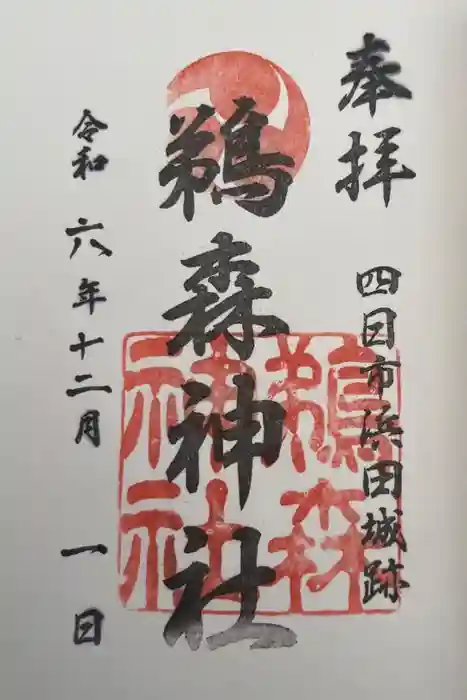 奉拝
四日市浜田城跡
鵜森神社
鵜森
神社
令和六年十二月一日